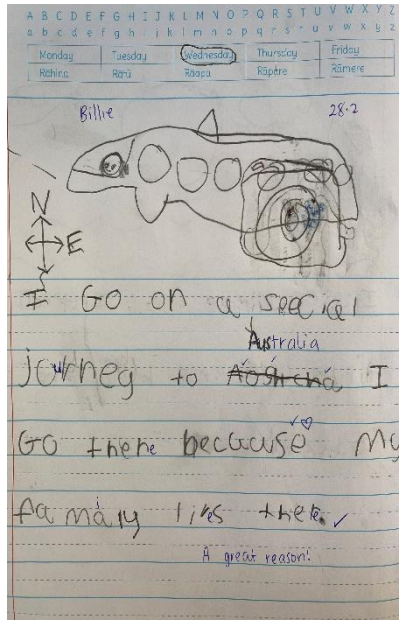 A B C D E F G H I J K L M N O P Q R S T U V W X Y Z
a b c d e f g h i j k l m n o p q r s t u v w x y z
Monday Tuesday Wednesday Thursday Friday
Rāhina Rātū Rāapa Rāpare Rāmere
Billie 28.2
N
E
I GO on a special
Australia
journey to I
GO there because My
famaly lives there.
A great reason!